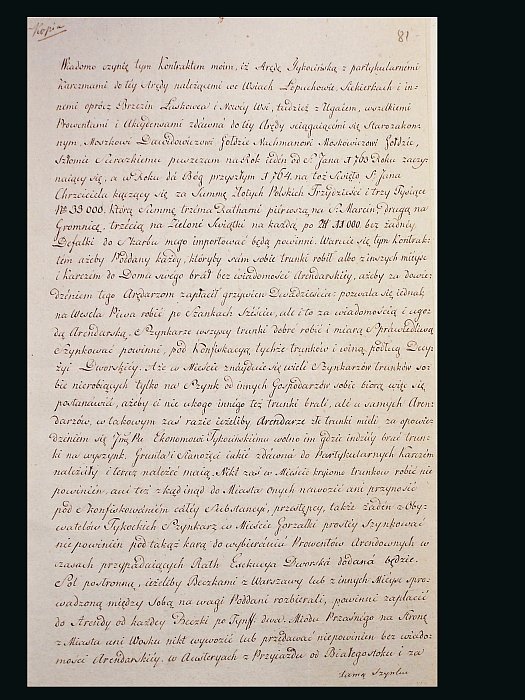 Kopia
81
Wiadomo czynię tym Kontraktem moim, iż Arędę Tykocińską z partykularnemi
Karczmami do tey Arędy należącemi we Wsiach Łopuchowie, Siekierkach i in-
nemi oprócz Brzezin Laskowca i Nowey Wsi, tudzież z Ugaiem, wszelkiemi
Prowentami i Akcydensami zdawna do tey Arędy sciągaiącemi się Starozakon-
nym, Moszkowi Dawidowiczowi Goldzie Nachmanowi Moskowiczowi Goldzie,
Szlomie puszczam na Rok ieden od S. Jana 1763 Roku zaczy-
naiący się, a w Roku da Bóg przyszłym 1764. na toż Swięto S. Jana
Chrzciciela kączący się za Summę Złotych Polskich Trzydzieści i trzy Tysiące
No 33000. którą Summę trzema Rathami pierwszą na S. Marcin, drugą na
Gromnicę, trzecią na Zielone Swiątki na każdą po zł 11000 bez żadney
Defalki do Skarbu mego importować będą powinni. Waruie się tym Kontrak-
tem ażeby Poddany każdy, któryby sam sobie trunki robił albo z inszych mieysc
i Karczem do Domu swego brał bez wiadomości Arendarskiey, ażeby za dowie-
dzeniem tego Arędarzom zapłacił grzywien Dwadzieścia: pozwala się iednak,
na Wesela Piwa robić po Szankach Sześciu, ale i to za wiadomością i ugo-
dą Arendarską. Szynkarze wszyscy trunki dobre robić i miarą Sprawiedliwą
Szynkować powinni, pod Konfiskacyą tychże trunków i winą podług Decy-
zyi Dworskiey. A że w Mieście znayduie się wieli Szynkarzów trunków so-
bie nierobiących tylko na Szynk od innych Gospodarzów sobie biorą więc się
postanawia, ażeby ci nie ukogo innego też trunki brali, ale u samych Aren-
darzów, w takowym zaś razie ieżeliby Arendarze złe trunki mieli za opowie-
dzeniem się Jmć Pu Ekonomowi Tykocińskiemu wolno im gdzie indziey brać trun-
ki na wyszynk. Grunta i Sianożęci iakie zdawna do Partykularnych Karczem
należały i teraz należeć maią. Nikt zaś w Mieście kryiomo trunkow robić nie
powinien, ani też z kąd inąd do Miasta onych nawozić ani przynosić
pod Skonfiskowaniem całey Substancyi, przestępcy, także żaden z Oby-
watelów Tykockich Szynkarz w Mieście Gorzałki prostey Szynkować
nie powinien pod takąż karą do wybierania Prowentów Arendownych w
czasach przypadaiących Rath Exekucya Dworska dodana będzie.
Sól postronną, ieżeliby Beczkami z Warszawy lub z innych Mieysc spro-
wadzoną między sobą na wagi Poddani rozbierali, powinni zapłacić
do Arendy od każdey Beczki po Tynff. dwa. Miodu Przaśnego na Stronę
z Miasta ani Wosku nikt wywozić lub przedawać niepowinien bez wiado-
mości Arendarskiey, w Austeryach z Przyiazdu od Białegostoku i za
Lamą Szynku